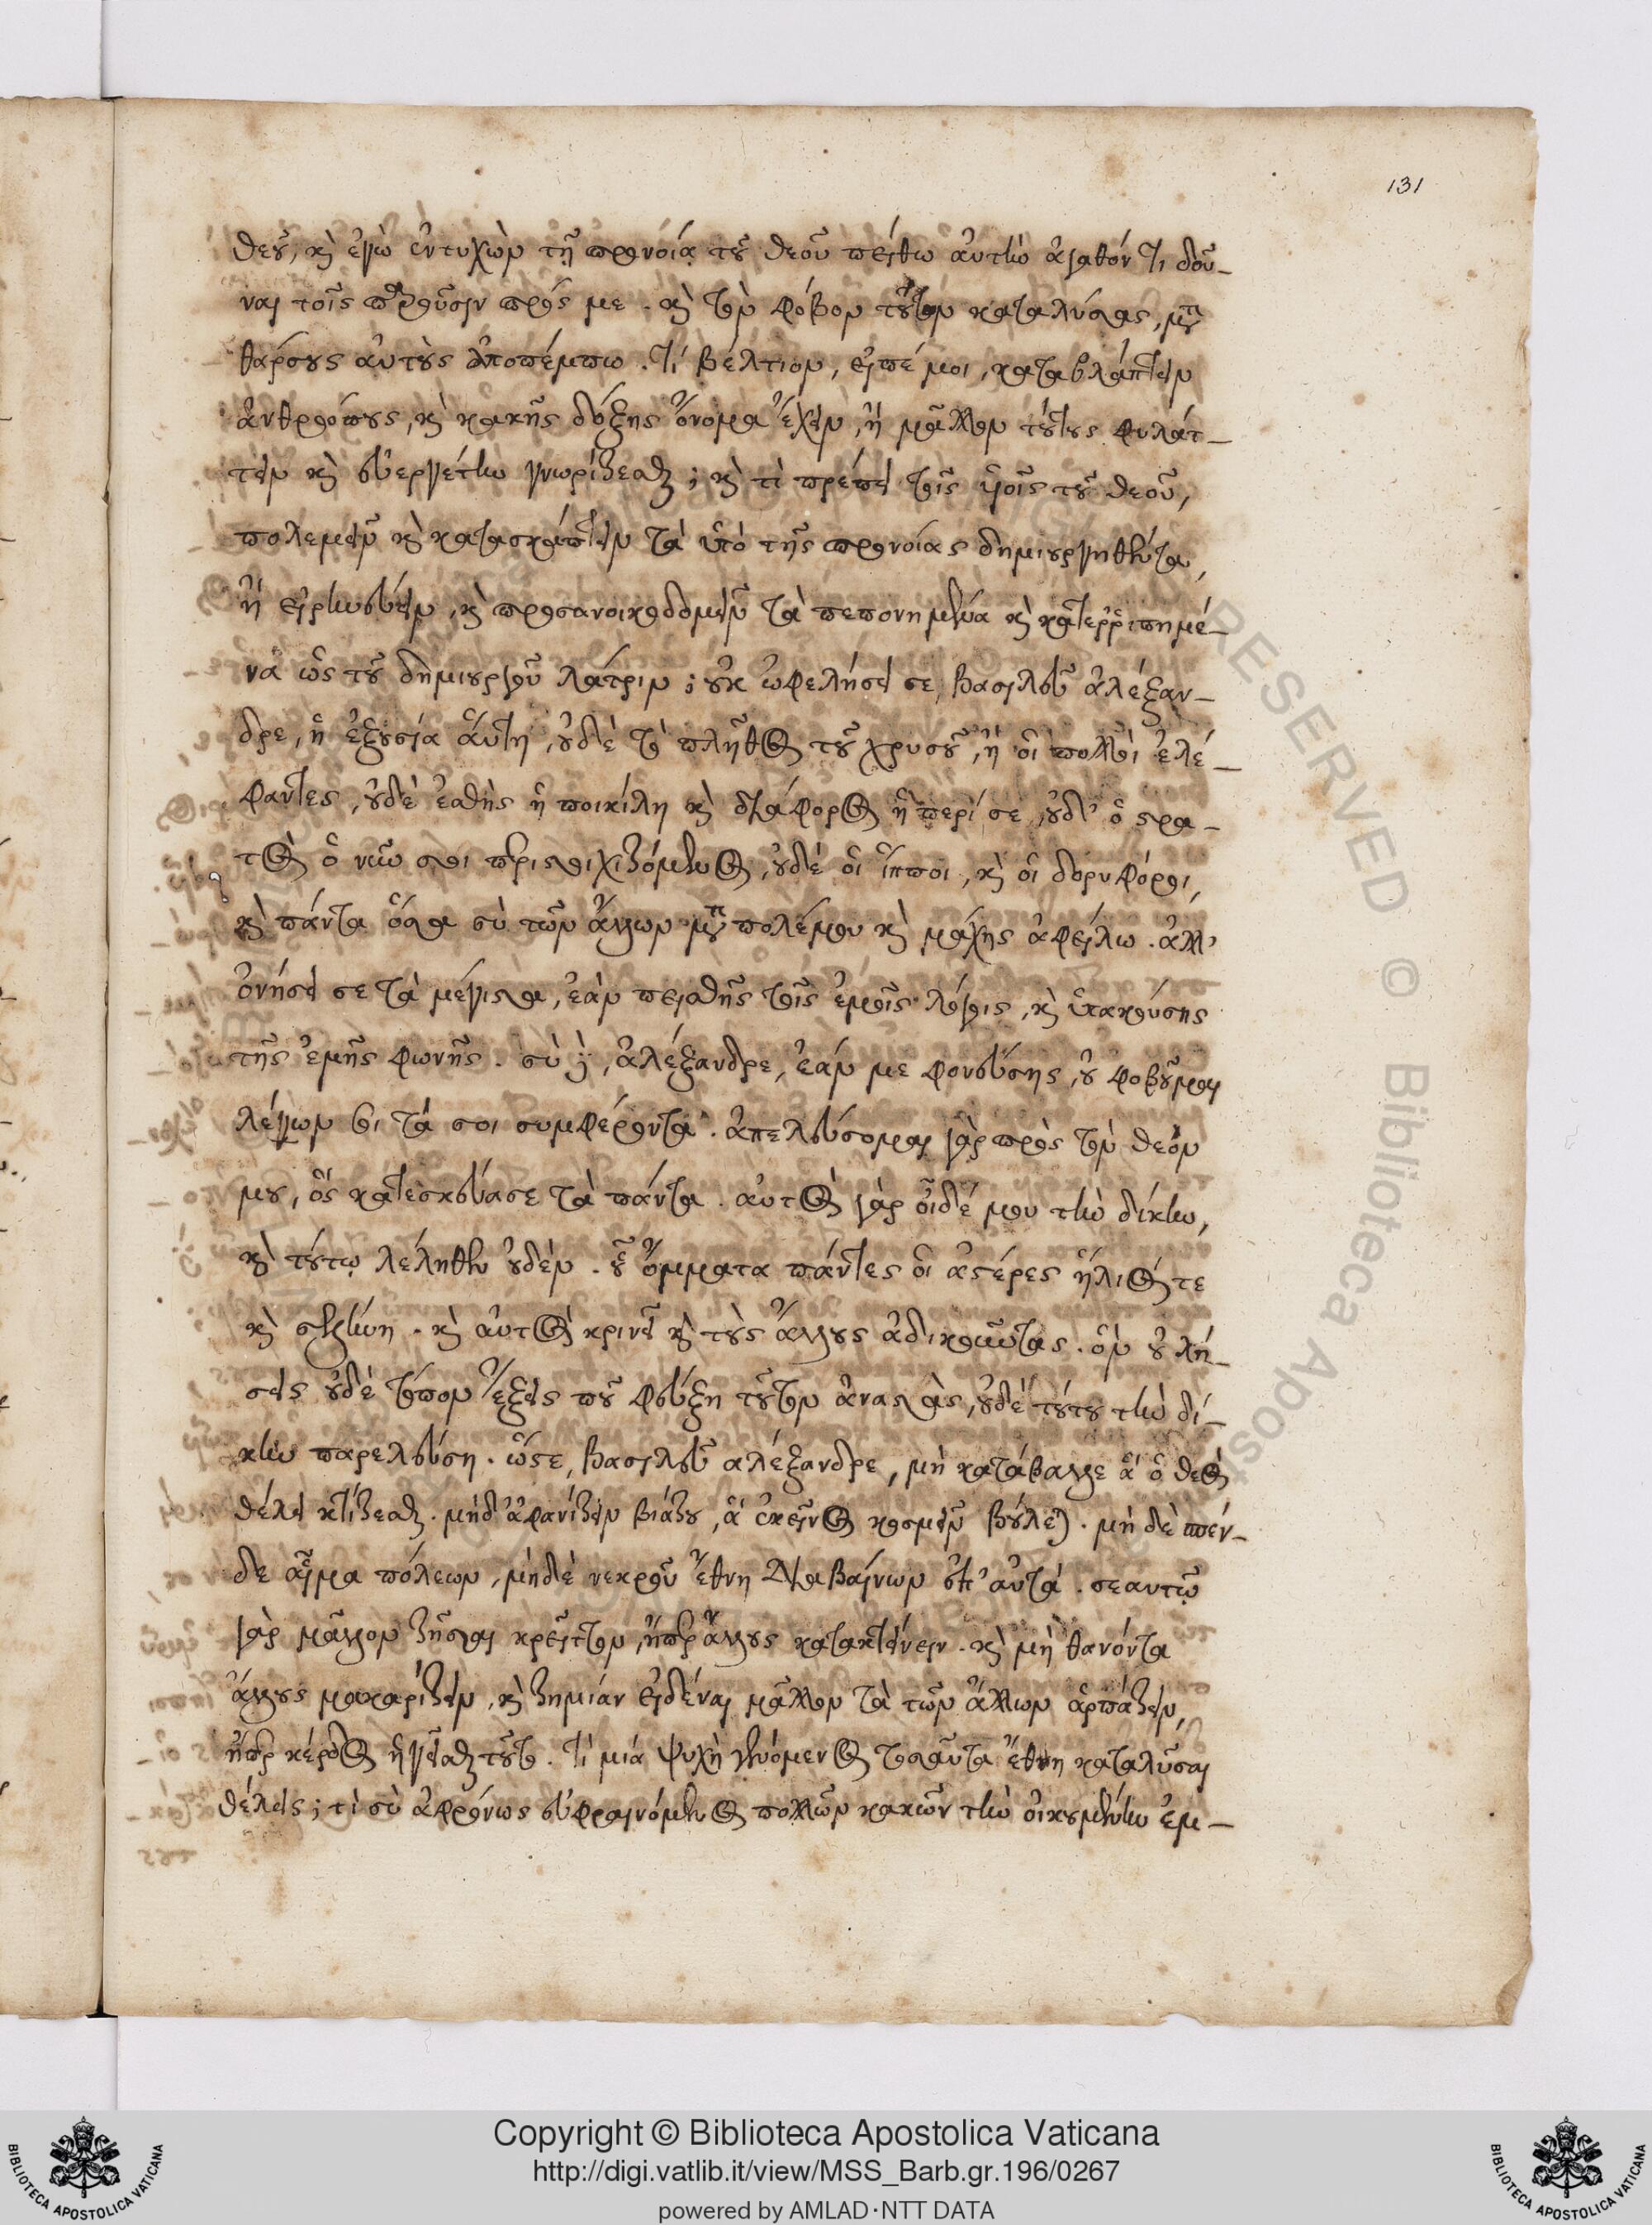 131
θεοῦ, καὶ ἐγὼ ἐντυχὼν τῇ προνοίᾳ τοῦ θεοῦ πείθω αὐτὴν ἀγαθόν τι δοῦ-
ναι τοῖς παροῦσιν πρός με. καὶ τὸν φόβον τοῦτον καταλύσας, μετὰ
θάρσους αὐτοὺς ἀποπέμπω. τί βέλτιον, εἰπέ μοι, καταβλάπτειν
ἀνθρώπους, καὶ κακῆς δόξης ὄνομα ἔχειν, ἢ μᾶλλον τούτους φυλάτ-
τειν καὶ εὐεργέτην γνωρίζεσθαι; καὶ τί πρέπει τοῖς υἱοῖς τοῦ θεοῦ,
πολεμεῖν καὶ κατασκάπτειν τὰ ὑπὸ τῆς προνοίας δημιουργηθέντα,
ἢ εἰρηνεύειν, καὶ προσανοικοδομεῖν τὰ πεπονημένα καὶ κατερριπημέ-
να ὡς τοῦ δημιουργοῦ λάτριν; οὐκ ὠφελήσει σε, βασιλεῦ ἀλέξαν-
δρε, ἡ ἐξουσία αὕτη, οὐδὲ τὸ πλῆθος τοῦ χρυσοῦ, ἢ οἱ πολλοὶ ἐλέ-
φαντες, οὐδὲ ἐσθὴς ἡ ποικίλη καὶ διάφορος ἡ περί σε, οὐδ' ὁ στρα-
τὸς ὁ νῦν σοι περιστοιχιζόμενος, οὐδὲ οἱ ἵπποι, καὶ οἱ δορυφόροι,
καὶ πάντα ὅσα σὺ τῶν ἄλλων μετὰ πολέμου καὶ μάχης ἀφείλω. ἀλλ'
ὀνήσει σε τὰ μέγιστα, ἐὰν πεισθῇς τοῖς ἐμοῖς λόγοις, καὶ ὑπακούσῃς
τῆς ἐμῆς φωνῆς. σὺ δὲ, ἀλέξανδρε, ἐάν με φονεύσῃς, οὐ φοβοῦμαι
λέγων σοι τά σοι συμφέροντα. ἀπελεύσομαι γὰρ πρὸς τὸν θεόν
μου, ὃς κατεσκεύασε τὰ πάντα. αὐτὸς γὰρ οἶδέ μου τὴν δίκην,
καὶ τούτῳ λέληθεν οὐδέν. οὗ ὄμματα πάντες οἱ ἀστέρες ἥλιός τε
καὶ σελήνη. καὶ αὐτὸς κρινεῖ καὶ τοὺς ἄλλους ἀδικοῦντας. ὃν οὐ λή-
σεις οὐδὲ τόπον ἕξεις ποῦ φεύξῃ τοῦτον ἀναστὰς, οὐδὲ τούτου τὴν δί-
κην παρελεύσῃ. ὥστε, βασιλεῦ αλέξανδρε, μὴ κατάβαλλε ἃ ὁ θεὸς
θέλει κτίζεσθαι. μηδ' ἀφανίζειν βιάζου, ἃ ἐκεῖνος κοσμεῖν βούλεται. μὴ δὲ πέν-
δε αἷμα πόλεων, μηδὲ νεκροῦ ἔθνη διαβαίνων ἐπ' αὐτά. σεαυτῷ
γὰρ μᾶλλον ζῆσαι κρεῖττον, ἤπερ ἄλλους κατακτείνειν. καὶ μὴ θανόντα
ἄλλους μακαρίζειν, καὶ ζημίαν εἰδέναι μᾶλλον τὰ τῶν ἄλλων ἁρπάζειν,
ἤπερ κέρδος ἡγεῖσθαι τοῦτο. τί μιά ψυχὴ γενόμενος τοσαῦτα ἔθνη καταλῦσαι
θέλεις; τί σὺ ἀφρόνως εὐφραινόμενος πολλῶν κακῶν τὴν οἰκουμένην ἐμ-
Copyright © Biblioteca Apostolica Vaticana
http://digi.vatlib.it/view/MSS_Barb.gr.196/0267
powered by AMLAD·NTT DATA
BIBLIOTECA APOSTOLICA VATICANA
BIBLIOTECA APOSTOLICA VATICANA